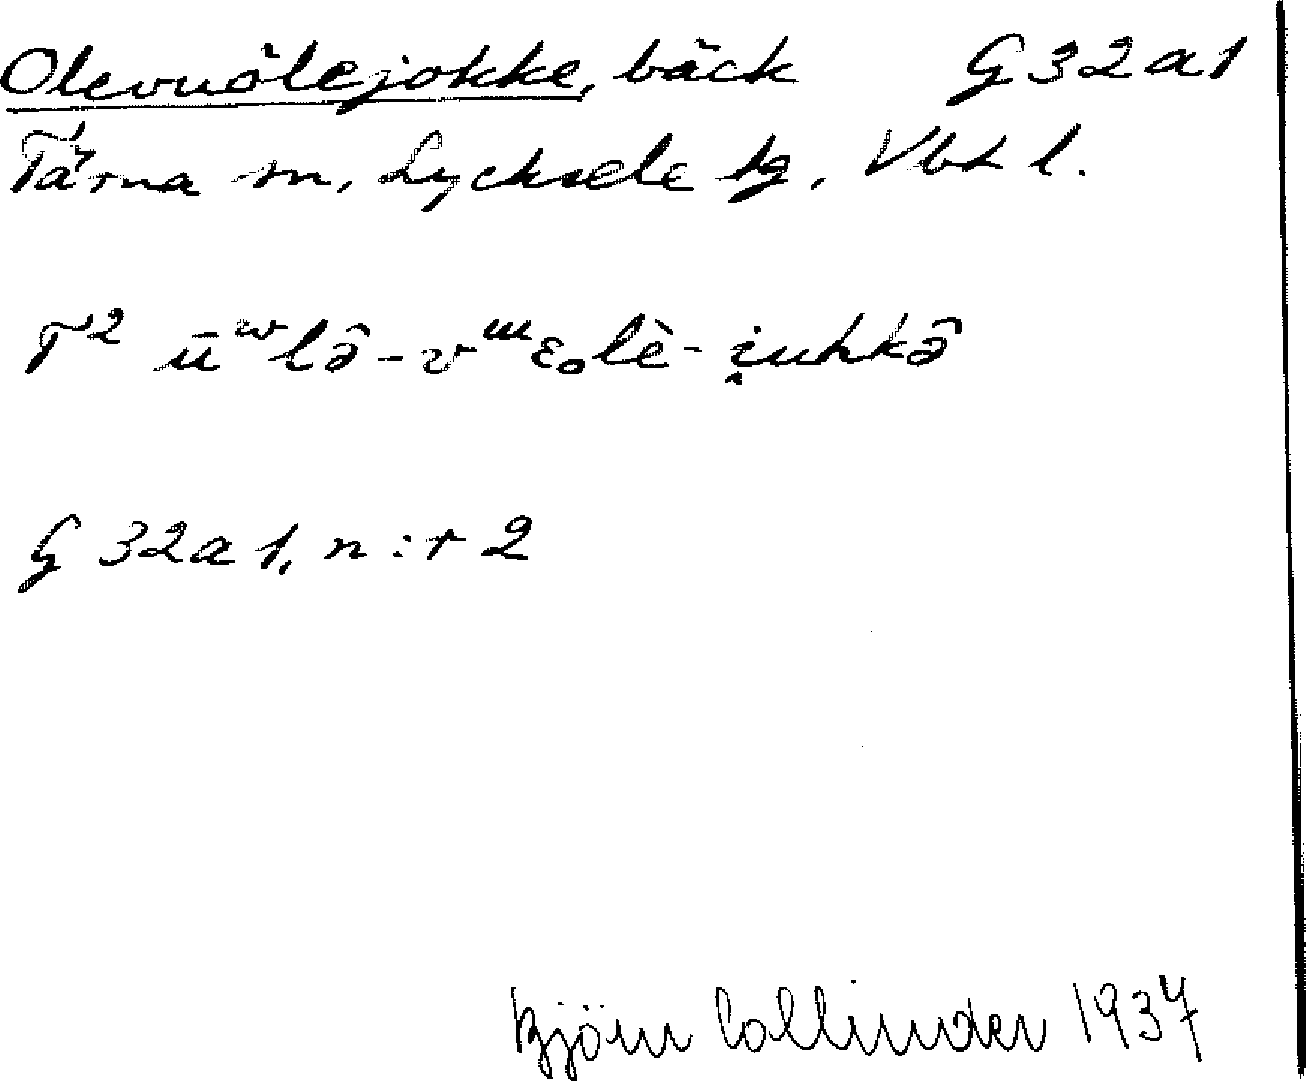 Olevuölejokke, bäck G32a1
Tärna sn, Lycksele tg, Vbt l.
T² ūʷlə̑-vᵚɛₒlè-i̯uhkə̑
G 32a 1, n:r 2
Björn Collinder 1937